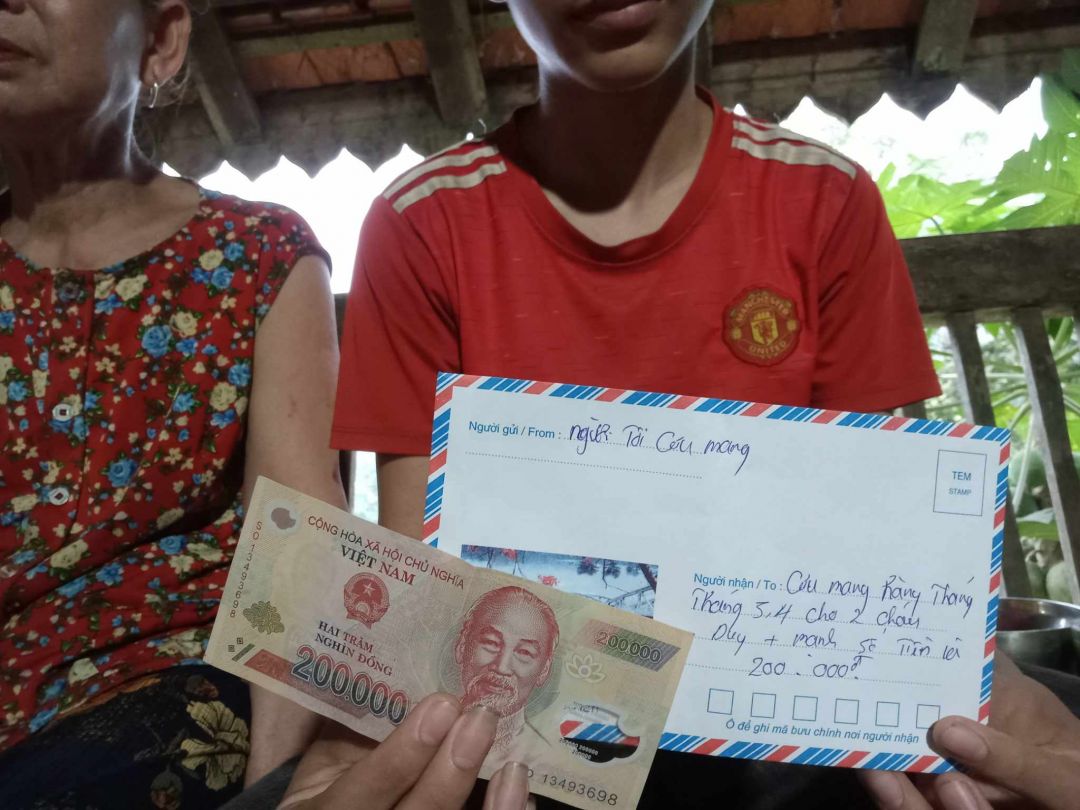 MANCHESTER
UNITED
Người gửi / From : người Tôi Cứu mang
TEM
STAMP
Người nhận / To : Cứu mang hàng Tháng
Tháng 3,4 cho 2 cháu
Duy + mạnh số Tiền là
200.000đ
Ô để ghi mã bưu chính nơi người nhận
CỘNG HÒA XÃ HỘI CHỦ NGHĨA
VIỆT NAM
SO13493698
HAI TRĂM
NGHÌN ĐỒNG
200.000
200.000
13493698